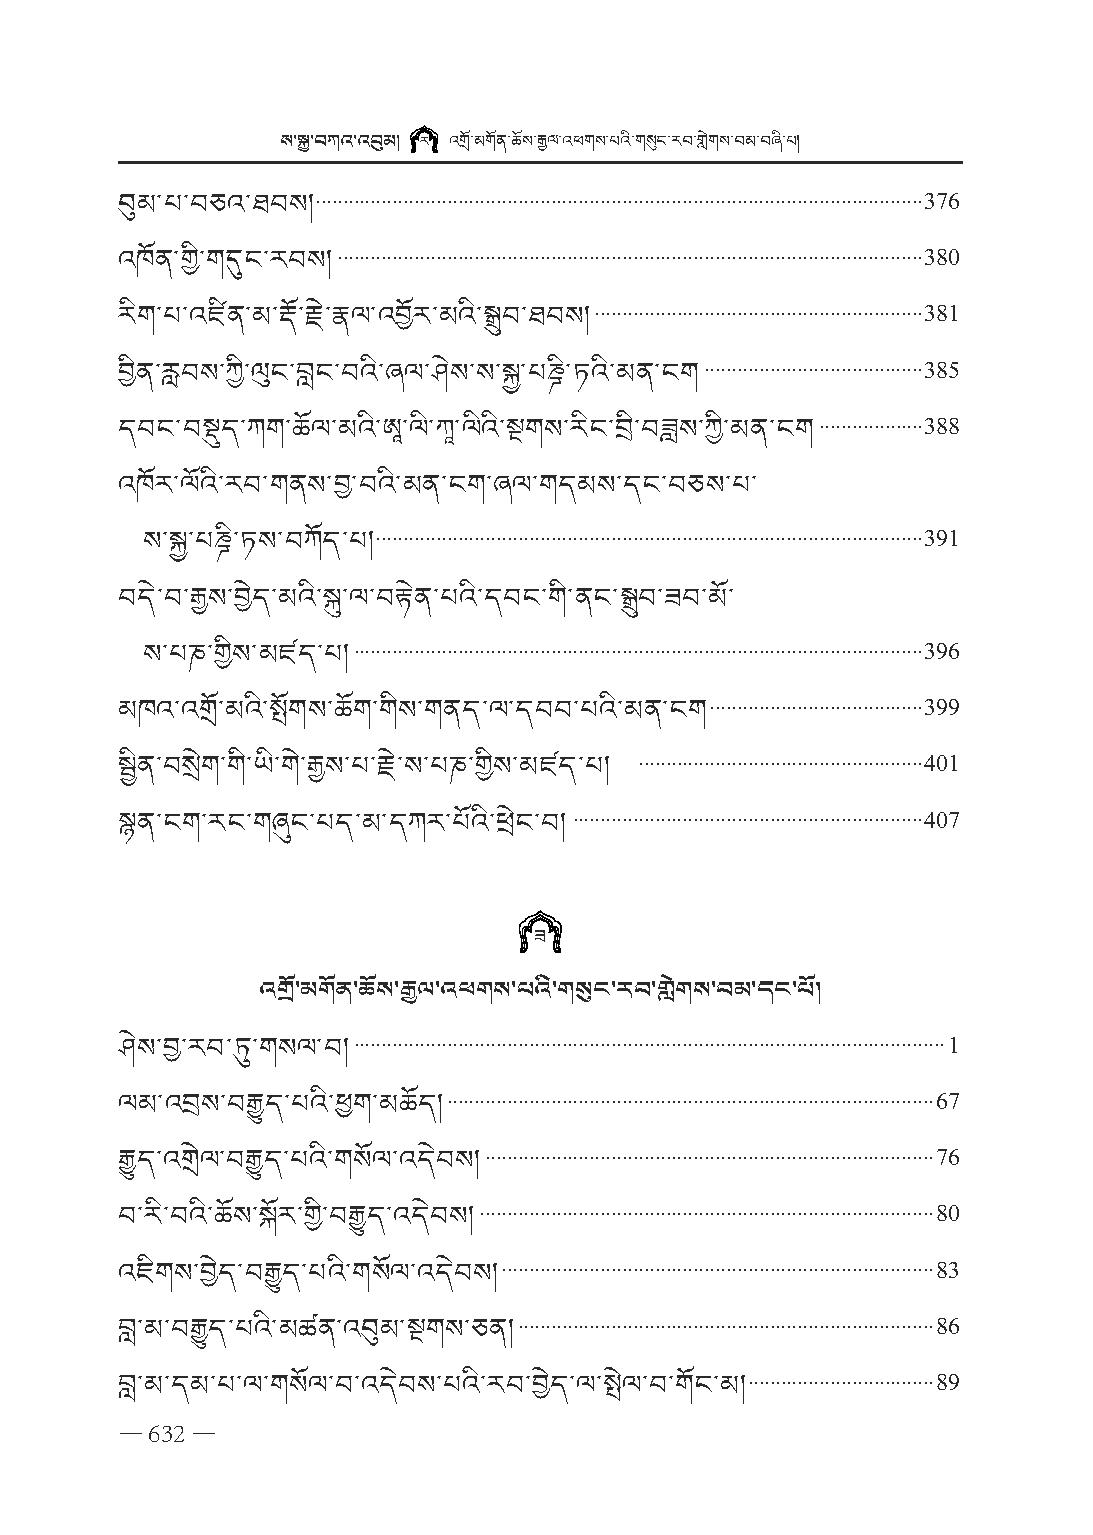 ས་སྐྱ་བཀའ་འབུམ། ར འགྲོ་མགོན་ཆོས་རྒྱལ་འཕགས་པའི་གསུང་རབ་གླེགས་བམ་བཞི་པ།
བུམ་པ་བཅའ་ཐབས།376
འཁོན་གྱི་གདུང་རབས།380
རིག་པ་འཛིན་མ་རྡོ་རྗེ་རྣལ་འབྱོར་མའི་སྒྲུབ་ཐབས།381
བྱིན་རླབས་ཀྱི་ལུང་བླང་བའི་ཞལ་ཤེས་ས་སྐྱ་པཎྜི་ཏའི་མན་ངག385
དབང་བསྡུད་ཀག་ཆོལ་མའི་ཨཱ་ལི་ཀཱ་ལིའི་སྔགས་རིང་བྲི་བཟླས་ཀྱི་མན་ངག388
འཁོར་ལོའི་རབ་གནས་བྱ་བའི་མན་ངག་ཞལ་གདམས་དང་བཅས་པ་
ས་སྐྱ་པཎྜི་ཏས་བཀོད་པ།391
བདེ་བ་རྒྱས་བྱེད་མའི་སྐུ་ལ་བརྟེན་པའི་དབང་གི་ནང་སྒྲུབ་ཟབ་མོ་
ས་པཎ་གྱིས་མཛད་པ།396
མཁའ་འགྲོ་མའི་སྤོགས་ཆོག་གིས་གནད་ལ་དབབ་པའི་མན་ངག399
སྦྱིན་བསྲེག་གི་ཡི་གེ་རྒྱས་པ་རྗེ་ས་པཎ་གྱིས་མཛད་པ།401
སྙན་ངག་རང་གཞུང་པད་མ་དཀར་པོའི་ཕྲེང་བ།407
འགྲོ་མགོན་ཆོས་རྒྱལ་འཕགས་པའི་གསུང་རབ་གླེགས་བམ་དང་པོ།
ཤེས་བྱ་རབ་ཏུ་གསལ་བ།1
ལམ་འབྲས་བརྒྱུད་པའི་ཕྱག་མཆོད།67
རྒྱུད་འགྲེལ་བརྒྱུད་པའི་གསོལ་འདེབས།76
བ་རི་བའི་ཆོས་སྐོར་གྱི་བརྒྱུད་འདེབས།80
འཇིགས་བྱེད་བརྒྱུད་པའི་གསོལ་འདེབས།83
བླ་མ་བརྒྱུད་པའི་མཚན་འབུམ་སྔགས་ཅན།86
བླ་མ་དམ་པ་ལ་གསོལ་བ་འདེབས་པའི་རབ་བྱེད་ལ་སྤེལ་བ་གོང་མ།89
— 632 —